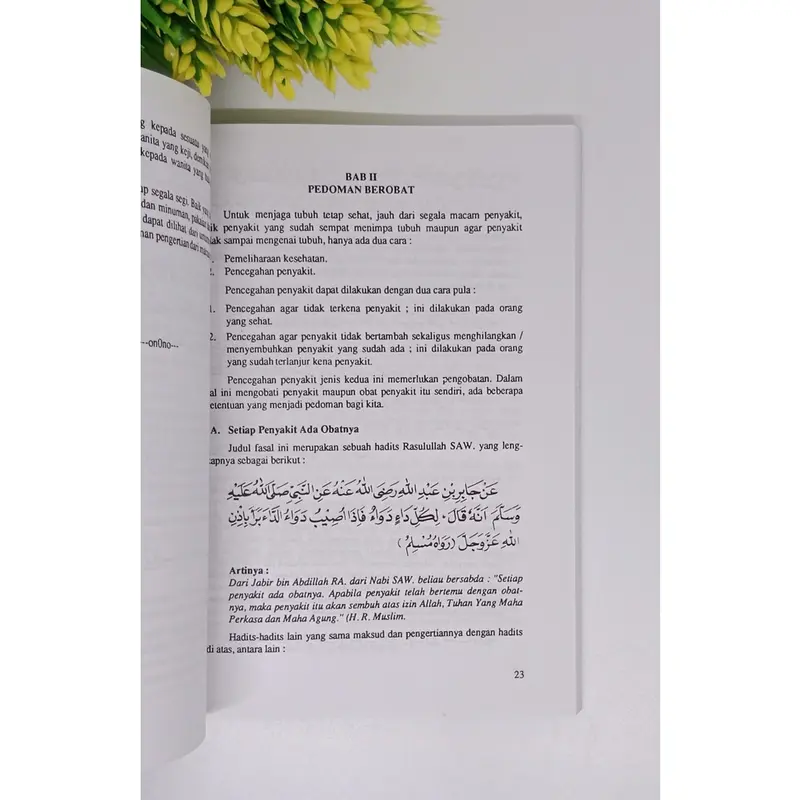 g kepada sesuatu yang
anita yang keji, demikian
kepada wanita yang baik
up segala segi. Baik yang
dan minuman, pakaian
dapat dilihat dari
han pengertian dari
---on0no---
BAB II
PEDOMAN BEROBAT
Untuk menjaga tubuh tetap sehat, jauh dari segala macam penyakit,
ik penyakit yang sudah sempat menimpa tubuh maupun agar penyakit
ak sampai mengenai tubuh, hanya ada dua cara :
. Pemeliharaan kesehatan.
2. Pencegahan penyakit.
Pencegahan penyakit dapat dilakukan dengan dua cara pula :
1. Pencegahan agar tidak terkena penyakit ; ini dilakukan pada orang
yang sehat.
2. Pencegahan agar penyakit tidak bertambah sekaligus menghilangkan /
menyembuhkan penyakit yang sudah ada ; ini dilakukan pada orang
yang sudah terlanjur kena penyakit.
Pencegahan penyakit jenis kedua ini memerlukan pengobatan. Dalam
al ini mengobati penyakit maupun obat penyakit itu sendiri, ada beberapa
etentuan yang menjadi pedoman bagi kita.
A. Setiap Penyakit Ada Obatnya
Judul fasal ini merupakan sebuah hadits Rasulullah SAW. yang leng-
apnya sebagai berikut :
عَنْ جَابِرِ بْنِ عَبْدِ اللهِ رَضِيَ اللهُ عَنْهُ عَنِ النَّبِيِّ صَلَّى اللهُ عَلَيْهِ
وَسَلَّمَ اَنَّهُ قَالَ ٠ لِكُلِّ دَاءٍ دَوَاءٌ فَاِذَا اُصِيْبُ دَوَاءُ الدَّاءِ بَرَأَ بِاِذْنِ
اللهِ عَزَّ وَجَلَّ (رَوَاهُ مُسْلِمُ)
Artinya :
Dari Jabir bin Abdillah RA. dari Nabi SAW. beliau bersabda : "Setiap
penyakit ada obatnya. Apabila penyakit telah bertemu dengan obat-
nya, maka penyakit itu akan sembuh atas izin Allah, Tuhan Yang Maha
Perkasa dan Maha Agung." (H. R. Muslim.
Hadits-hadits lain yang sama maksud dan pengertiannya dengan hadits
di atas, antara lain :
23